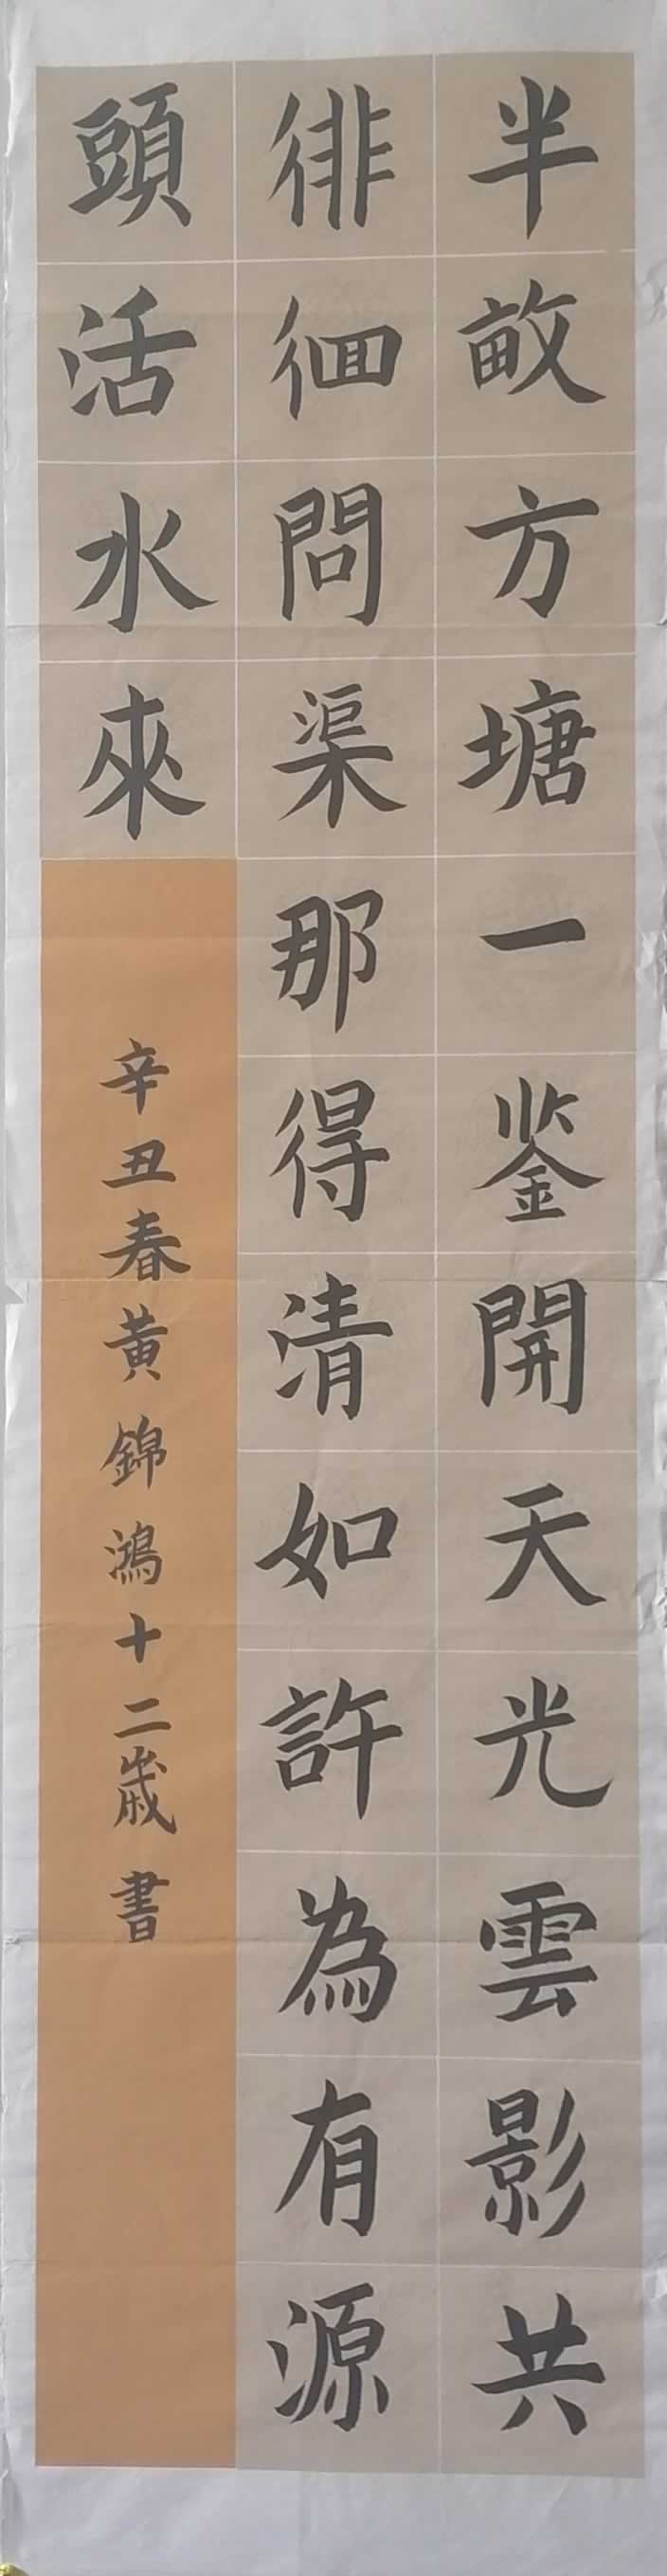 半畝方塘一鉴開天光雲影共
徘徊問渠那得清如許為有源
頭活水來
辛丑春黄錦鴻十二歲書